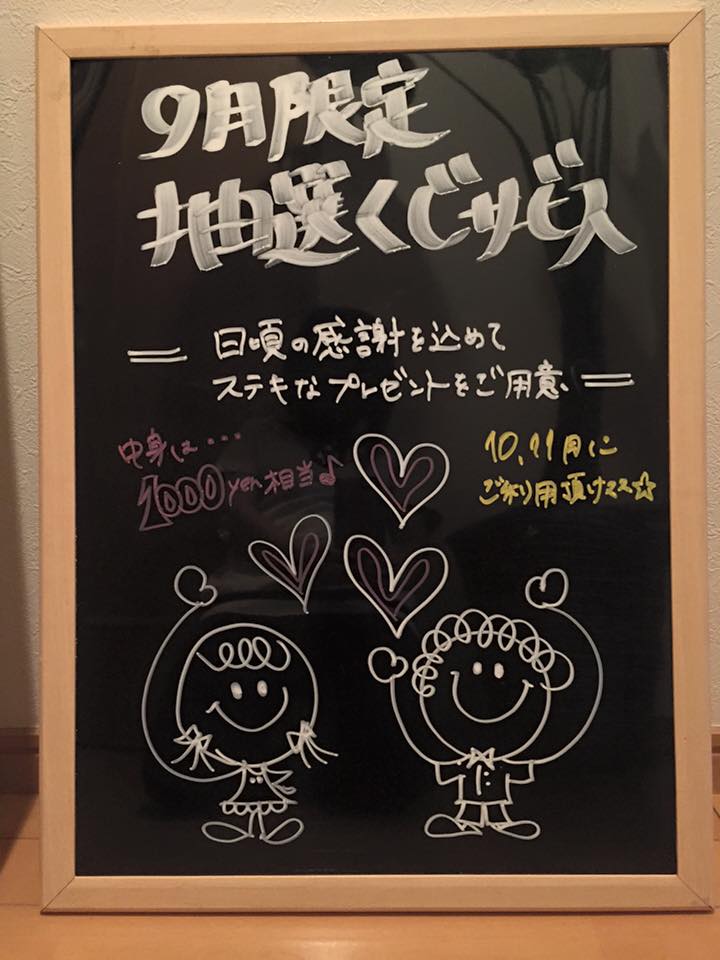 9月限定
抽選くじサービス
日頃の感謝を込めて
ステキなプレゼントをご用意、
中身は・・・
1000yen相当♪
10、11月に
ご利用頂けます☆